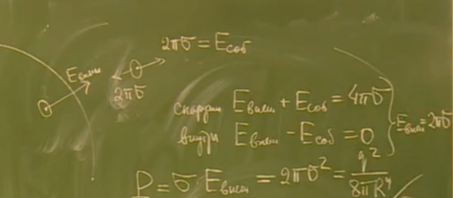 2πσ = Eсоб
Eвнеш
2πσ
снаружи Eвнеш + Eсоб = 4πσ
внутри Eвнеш - Eсоб = 0
Eвнеш = 2πσ
P = σ · Eвнеш = 2πσ² = q² / 8πR⁴